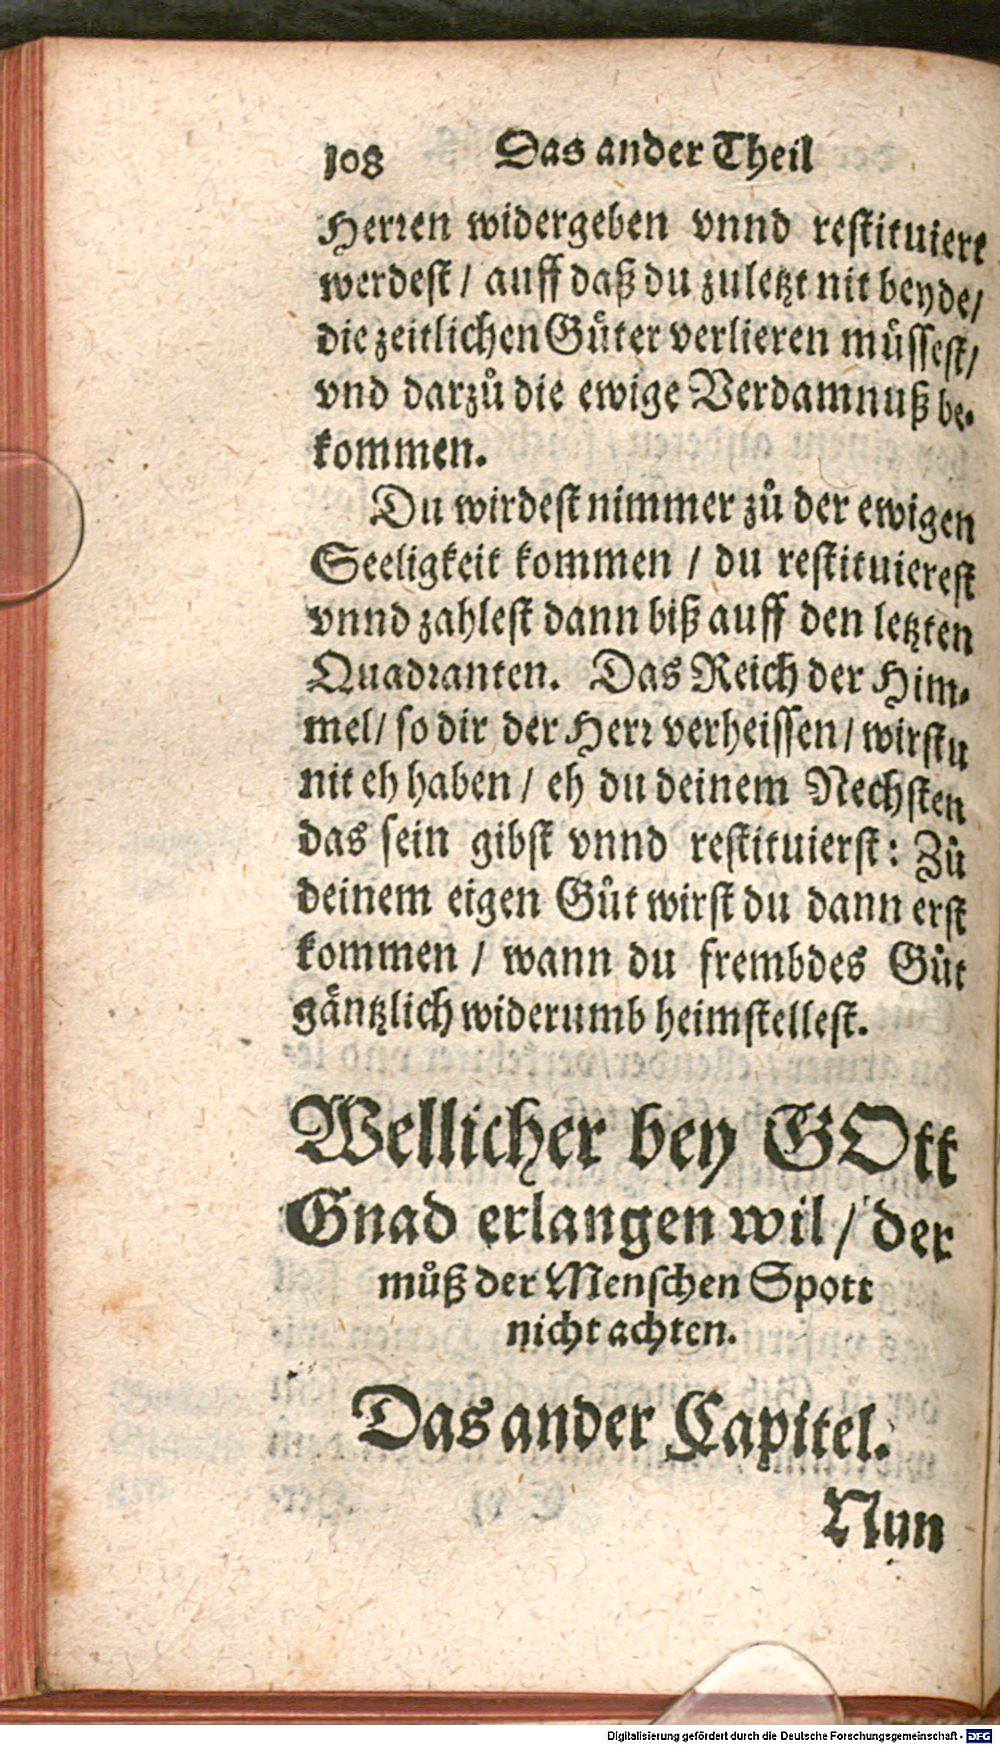 108 Das ander Theil
Herren widergeben vnnd restituiert
werdest / auff daß du zuletzt nit beyde/
die zeitlichen Güter verlieren müssest/
vnd darzů die ewige Verdamnuß be-
kommen.
Du wirdest nimmer zů der ewigen
Seeligkeit kommen / du restituierest
vnnd zahlest dann biß auff den letzten
Quadranten. Das Reich der Him-
mel/ so dir der Herr verheissen/ wirstu
nit eh haben / eh du deinem Nechsten
das sein gibst vnnd restituierst: Zů
deinem eigen Gůt wirst du dann erst
kommen / wann du frembdes Gůt
gäntzlich widerumb heimstellest.
Wellicher bey GOtt
Gnad erlangen wil / der
můß der Menschen Spott
nicht achten.
Das ander Capitel.
Nun
Digitalisierung gefördert durch die Deutsche Forschungsgemeinschaft - DFG